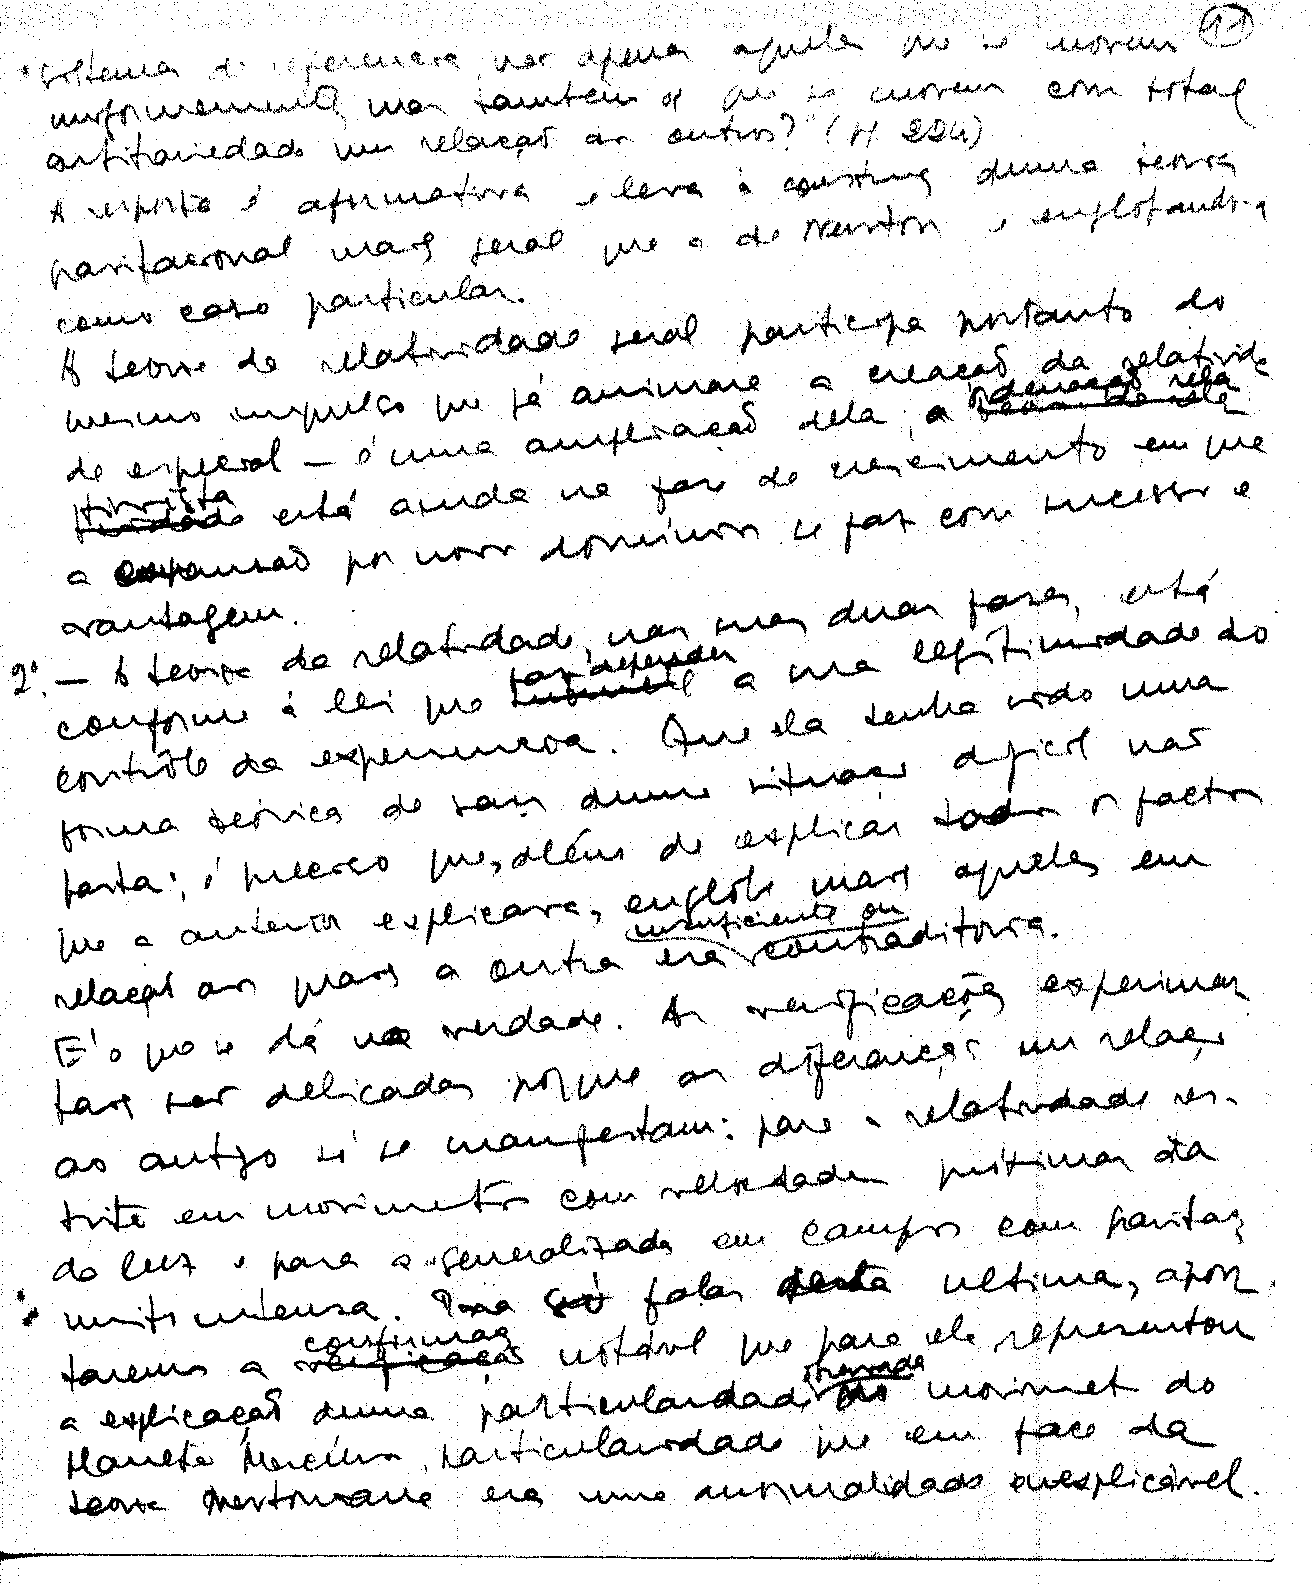 11
sistema de referencia, não apenas aqueles que se movem
uniformemente mas tambem os que se movem com total
arbitrariedade em relação aos outros?" (H 224)
A resposta é afirmativa e leva à construção duma teoria
gravitacional mais geral que a de Newton e englobando-a
como caso particular.
A teoria da relatividade geral participa portanto do
mesmo impulso que já animara a creação da relativida-
de especial — é uma ampliação dela, a ordenação rela
tivista está ainda na fase de crescimento em que
a expansão por novos dominios se faz com sucesso e
vantagem.
2º. — A teoria da relatividade, nas suas duas fases, está
conforme à lei que faz depender a sua legitimidade do
contrôle da experiencia. Que ela tenha sido uma
forma teórica de sair duma situação dificil não
basta; é preciso que, além de explicar todos os factos
que a anterior explicava, englobe mais aqueles em
relação aos quais a outra era insuficiente ou contraditoria.
E' o que se dá na verdade. As verificações experimen
tais são delicadas porque as diferenças em relação
ao antigo só se manifestam: para a relatividade res-
trita em movimentos com velocidades próximas da
da luz e para a generalizada em campos com gravitação
muito intensa. Para só falar desta ultima, apon
taremos a confirmação notável que para ela representou
a explicação duma particularidade do movimento do
planeta Mercúrio, particularidade que em face da
teoria Newtoniana era uma anormalidade inexplicável.